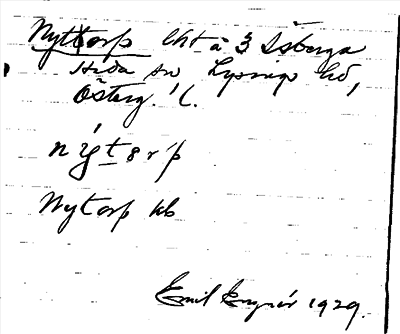 Nyttorp lht å 3 Isberga
Heda sn Lysings hd,
Österg. l.
n ý t ɵ r p
Nytorp kb
Emil 1929.